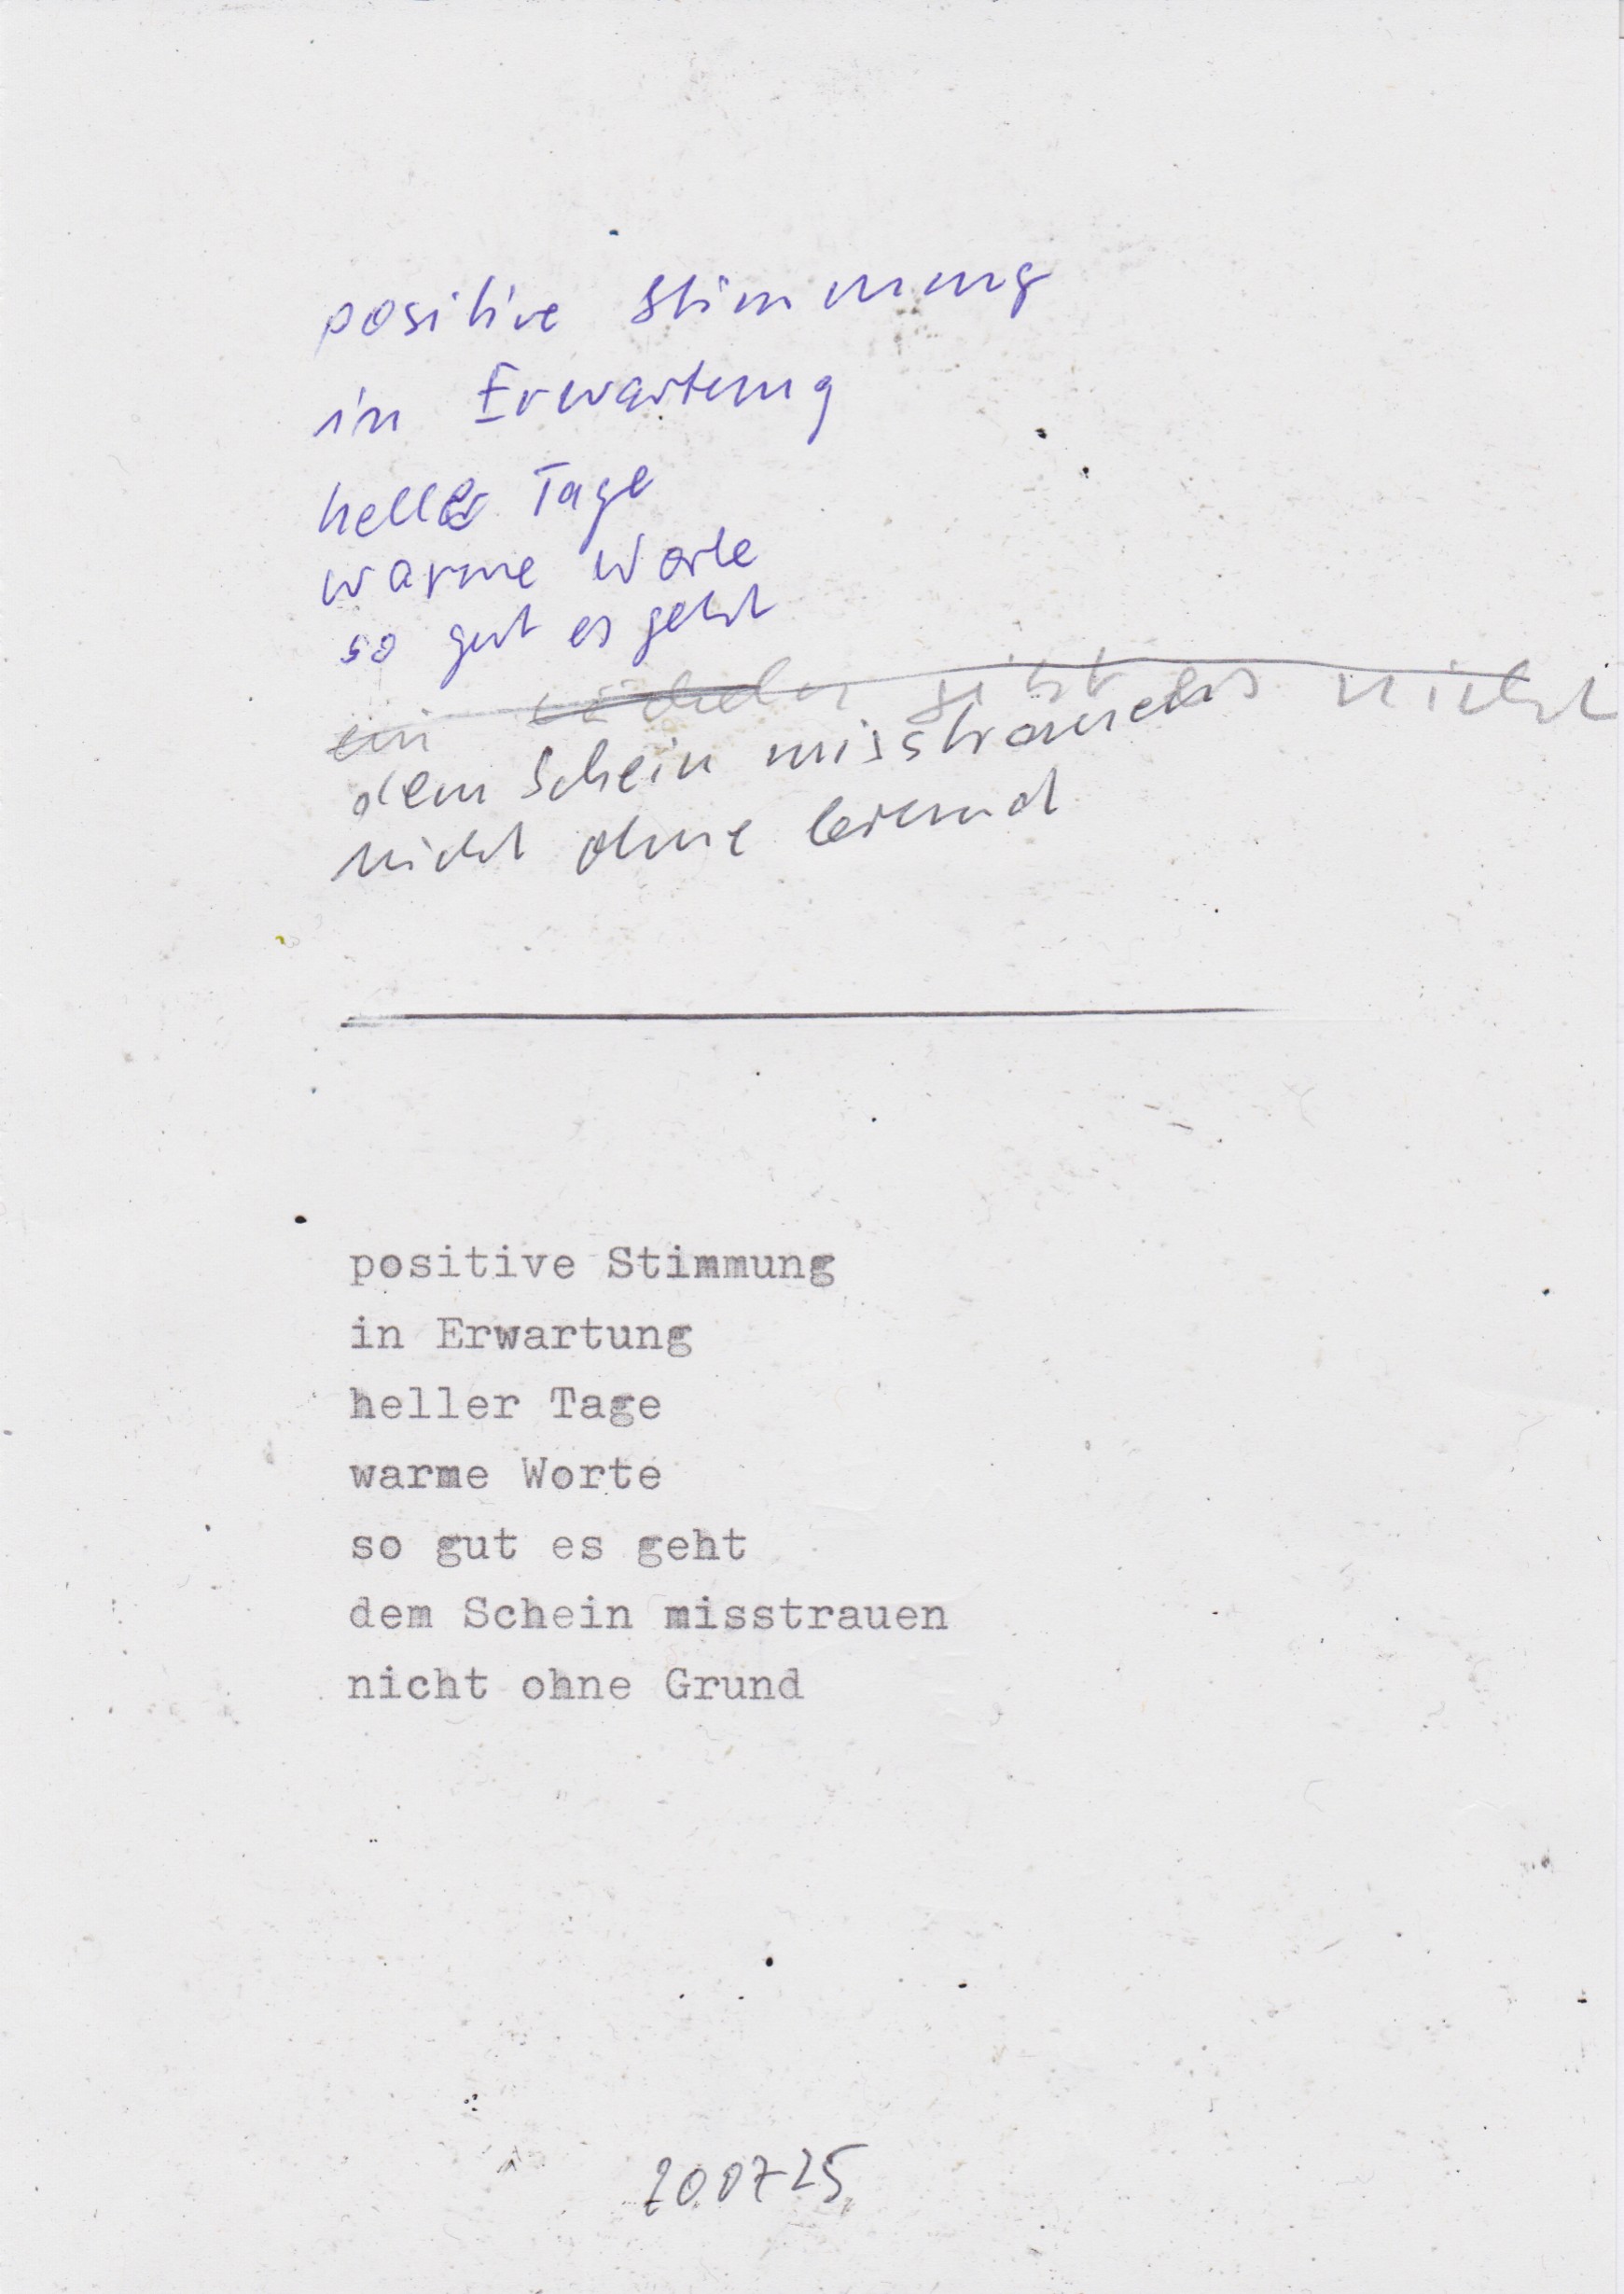 positive Stimmung
in Erwartung
heller Tage
warme Worte
so gut es geht
ein Lächeln gibt es nicht
dem Schein misstrauen
nicht ohne Grund
positive Stimmung
in Erwartung
heller Tage
warme Worte
so gut es geht
dem Schein misstrauen
nicht ohne Grund
200725